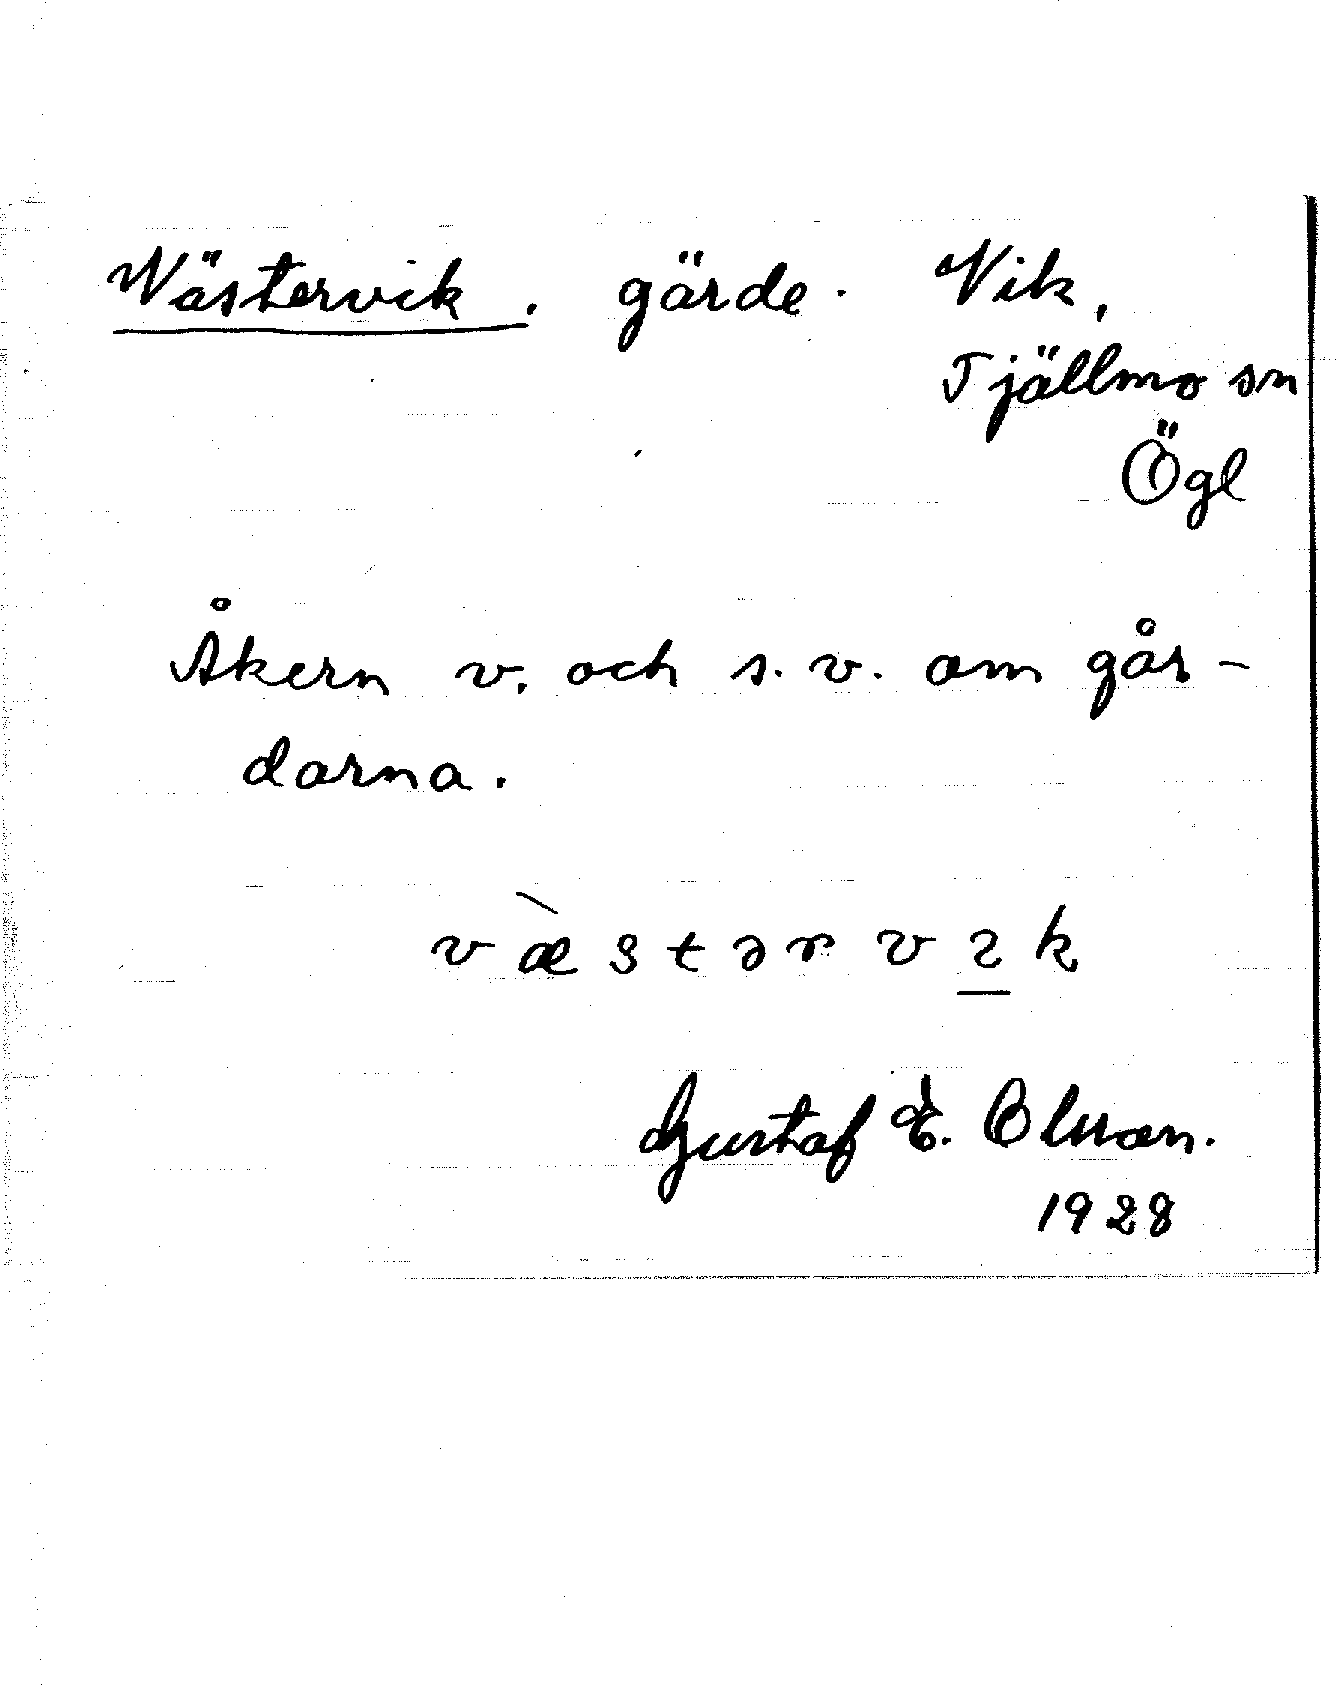 Västervik. gärde. Vik,
Tjällmo sn
Ögl
Åkern v. och s.v. om går-
darna.
væ̀stərvık
Gustaf E. Olsson.
1928